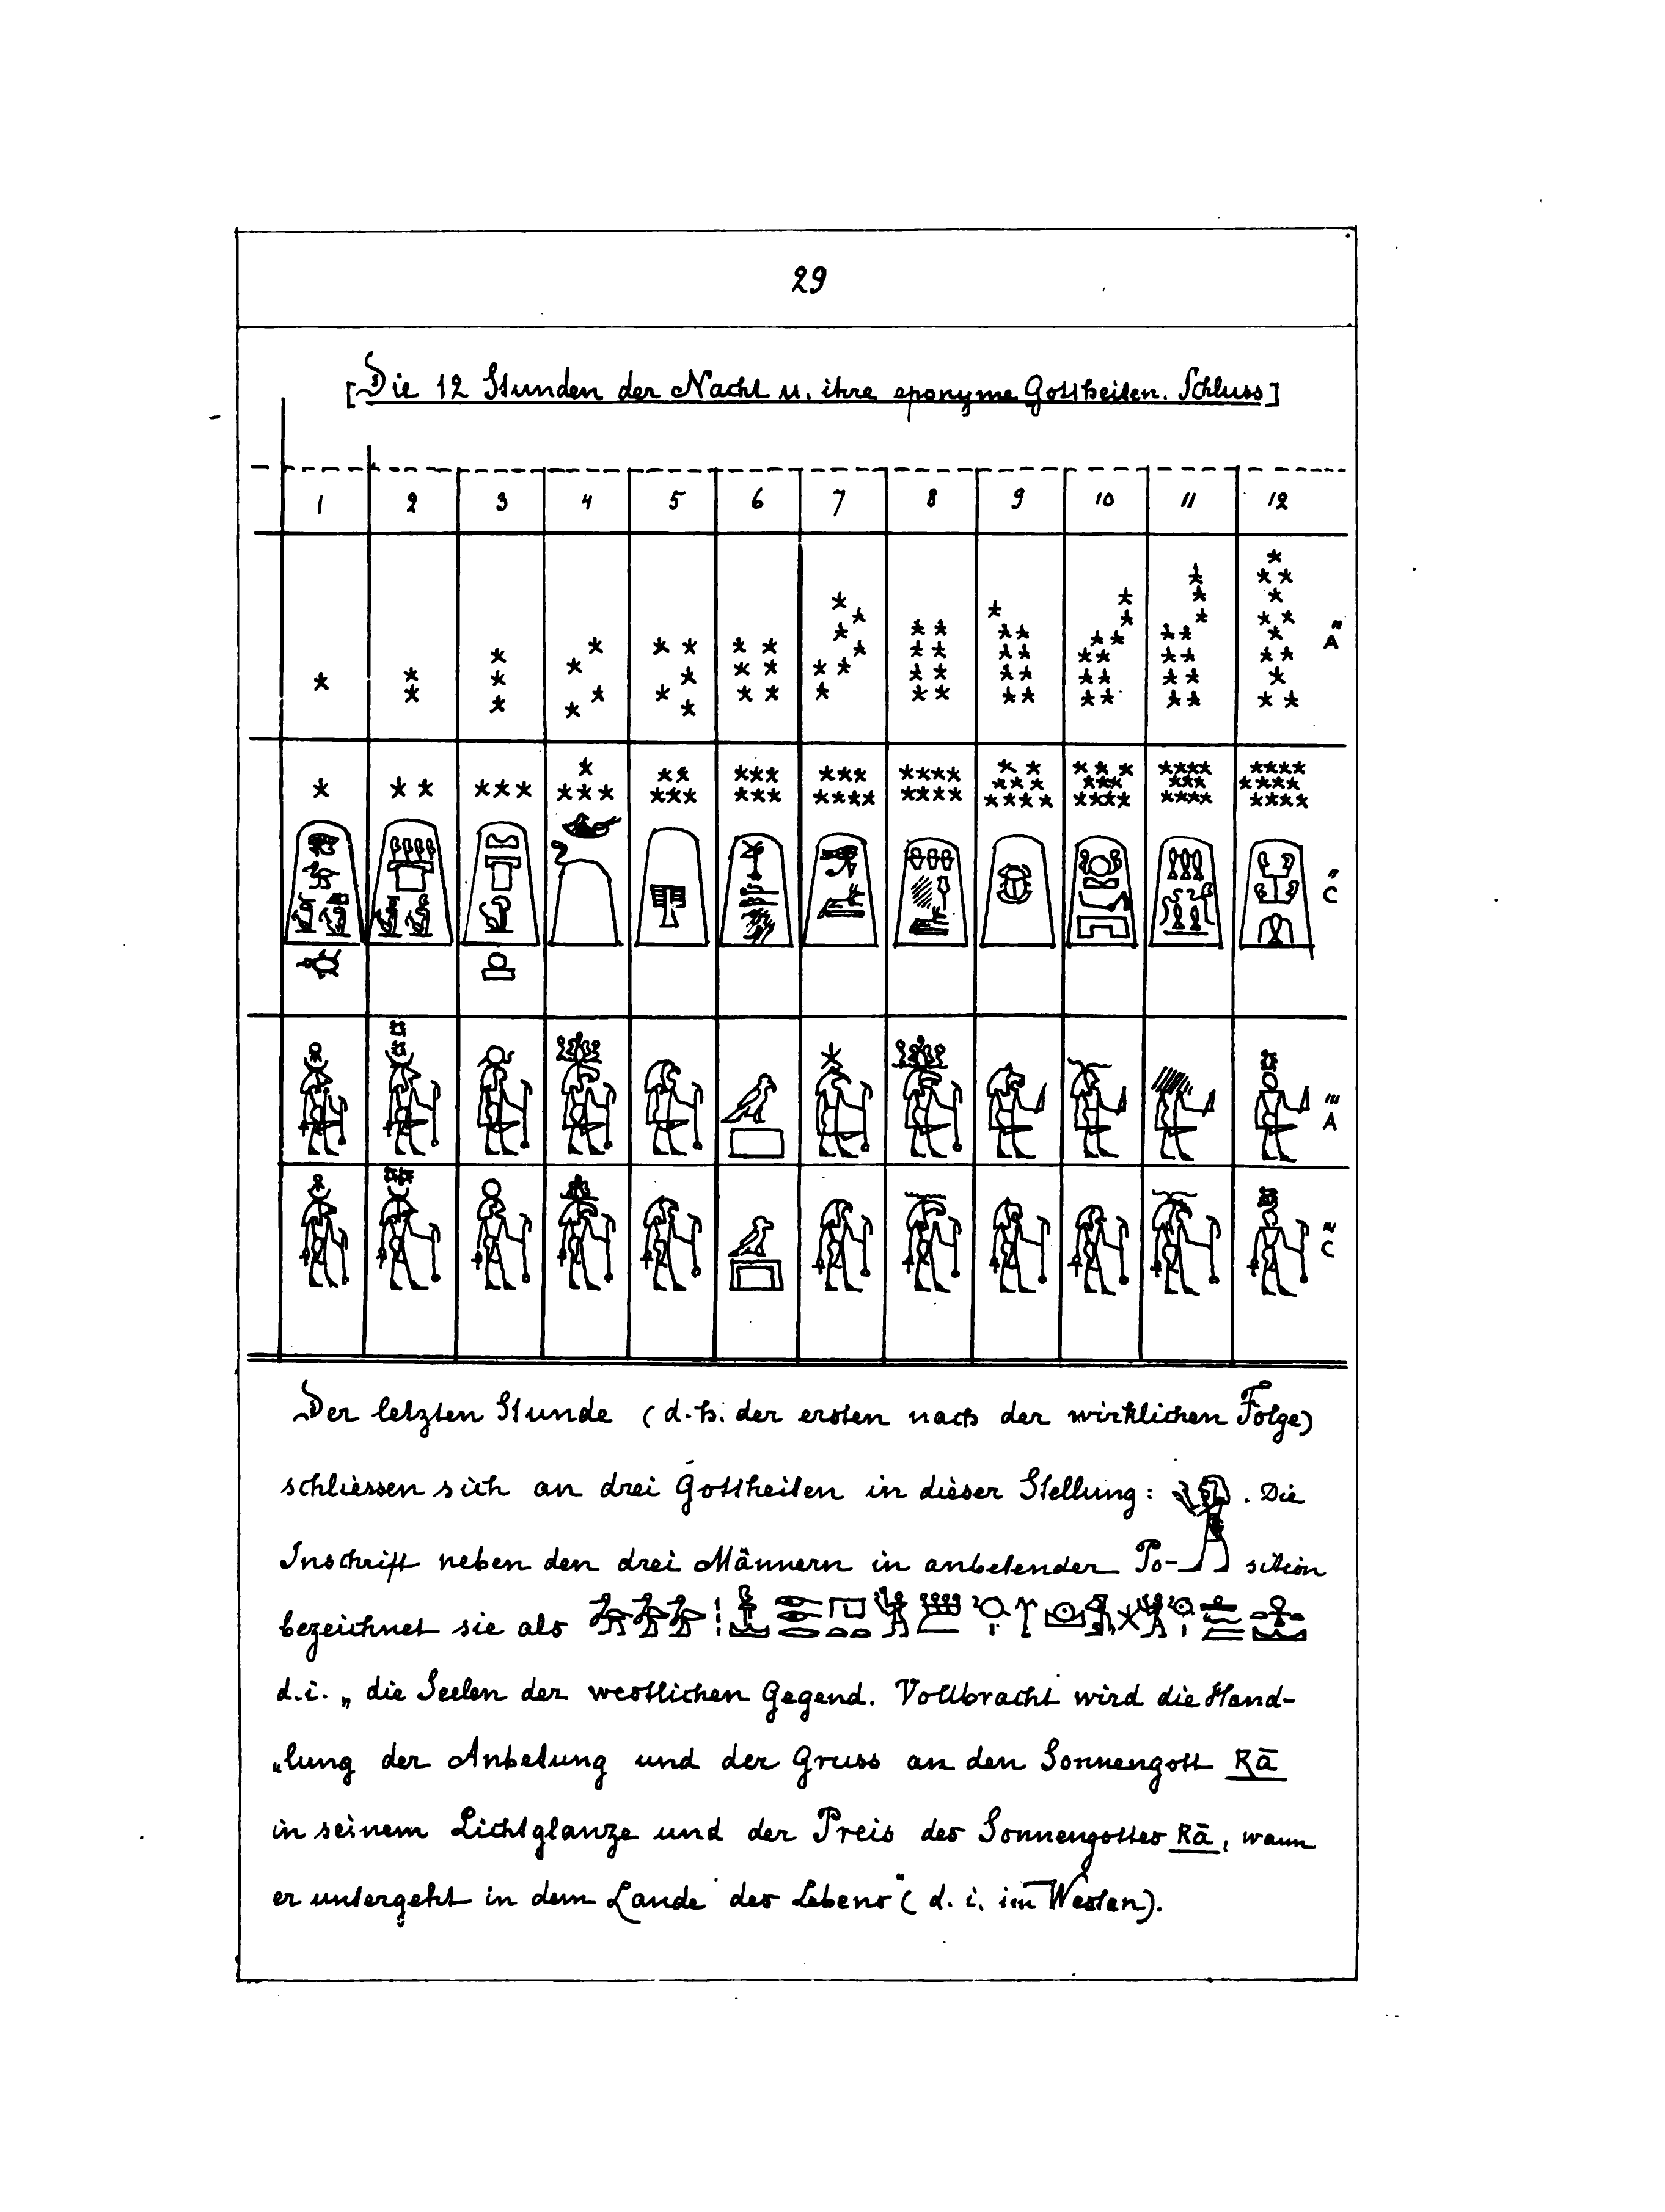 29
[Die 12 Stunden der Nacht u. ihre eponyme Gottheiten. Schluss]
1 2 3 4 5 6 7 8 9 10 11 12
A"
C"
A'''
C""
Der letzten Stunde (d.h. der ersten nach der wirklichen Folge)
schliessen sich an drei Gottheiten in dieser Stellung: . Die
Inschrift neben den drei Männern in anbetender Po- sition
bezeichnet sie als
d.i. „die Seelen der westlichen Gegend. Vollbracht wird die Hand-
„lung der Anbetung und der Gruss an den Sonnengott Rā
in seinem Lichtglanze und der Preis des Sonnengottes Rā, wann
er untergeht in dem Lande des Lebens" (d. i. im Westen).